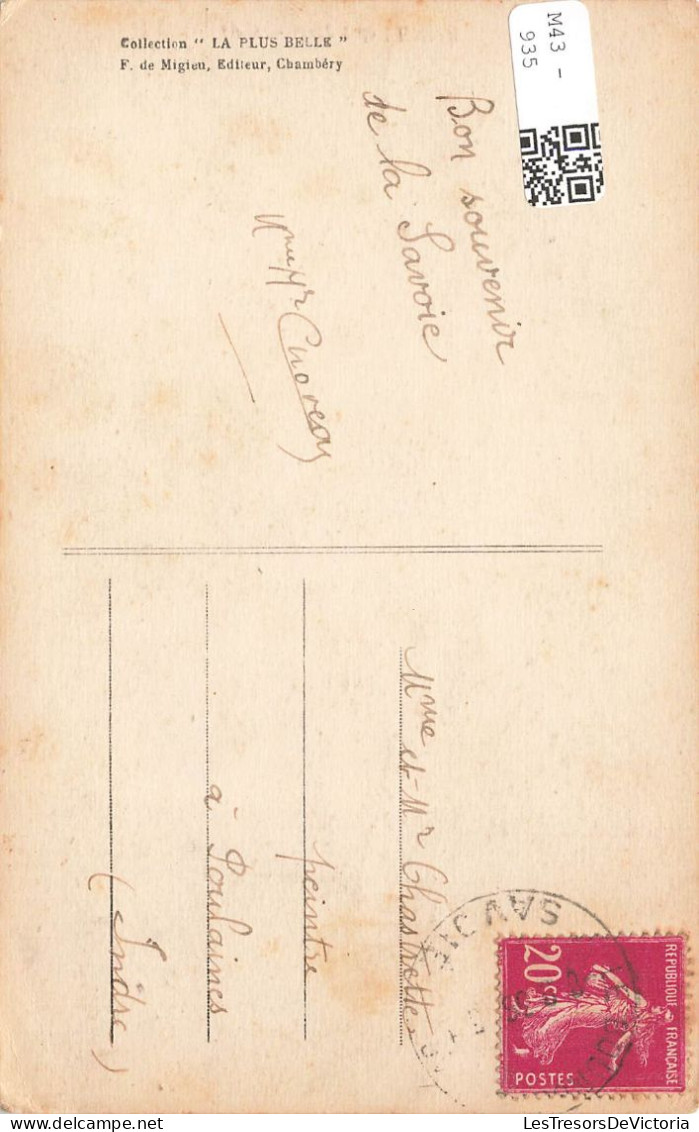 Collection " LA PLUS BELLE "
F. de Migieu, Editeur, Chambéry
M43 -
935
Bon souvenir
de la Savoie
Mme Mr
Mme et Mr Chastrette
peintre
à Poulaines
(Indre)
SAV
REPUBLIQUE FRANÇAISE
20c
POSTES
LesTresorsDeVictoria